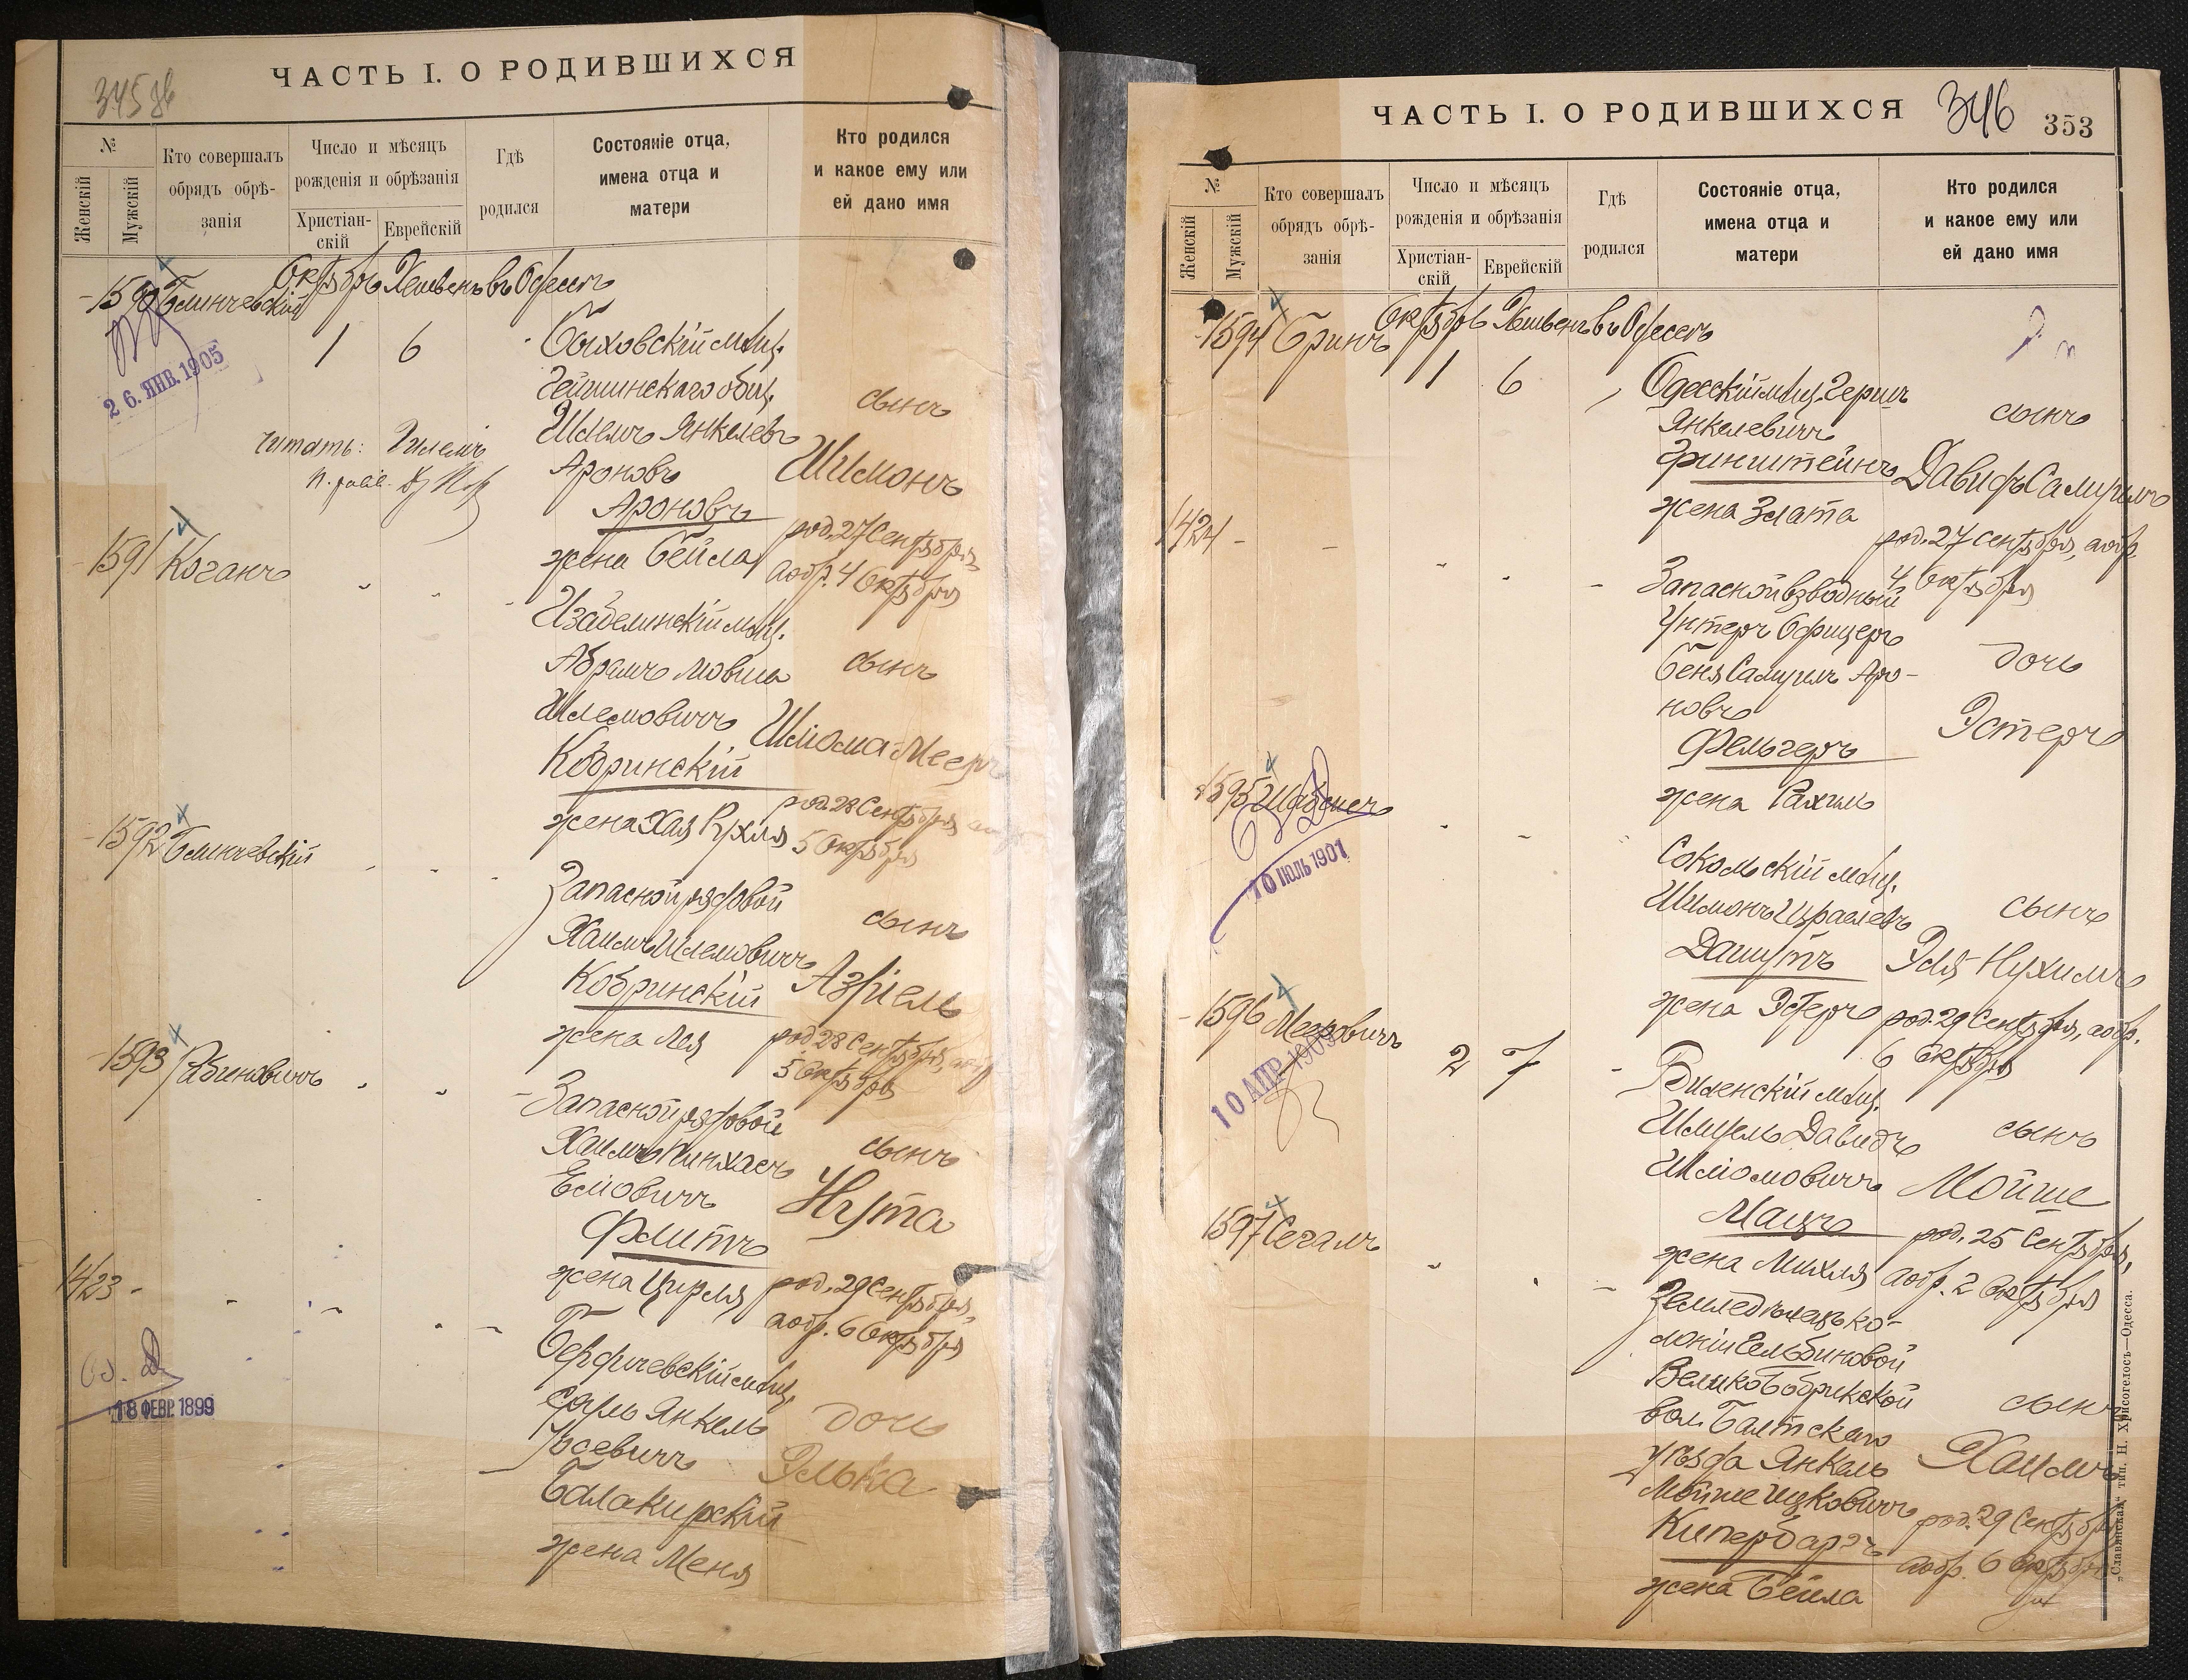 345 об
ЧАСТЬ I. О РОДИВШИХСЯ
№
Женскій
Мужскій
Кто совершалъ
обрядъ обрѣ-
занія
Число и мѣсяцъ
рожденія и обрѣзанія
Христіан-
скій
Еврейскій
Гдѣ
родился
Состояніе отца,
имена отца и
матери
Кто родился
и какое ему или
ей дано имя
Октябрь Хешвенъ въ Одессѣ
1590 Блинчевскій
1 6
26. ЯНВ. 1905
Быховскій мѣщ.
общ.
Янкелевъ
Ароновъ
Ароновъ
жена Бейла
читать:
сынъ
Шимонъ
род. 27 Сентября,
а обр. 4 Октября
1591 Коганъ
Изабелинскій мѣщ.
Абрамъ Мовша
Шлемовичъ
Кобринскій
жена Хая Рухля
сынъ
Шлiома-Мееръ
род. 28 Сентября
5 Октября
1592 Блинчевскій
Запасной рядовой
Хаимъ Шлемовичъ
Кобринскій
жена Лея
сынъ
Азріель
род. 28 Сентября,
5 Октября
1593 Рабиновичъ
Запасной рядовой
Хаимъ Пинхасъ
Еліовичъ
Флитъ
жена Цирля
сынъ
Нута
род. 29 Сентября,
а обр. 6 Октября
1423 -
18 ФЕВР. 1899
Бердичевскій мѣщ.
Янкель
Іосевичъ
Балакирскій
жена Меня
дочь
Элька
ЧАСТЬ I. О РОДИВШИХСЯ
346
353
№
Женскій
Мужскій
Кто совершалъ
обрядъ обрѣ-
занія
Число и мѣсяцъ
рожденія и обрѣзанія
Христіан-
скій
Еврейскій
Гдѣ
родился
Состояніе отца,
имена отца и
матери
Кто родился
и какое ему или
ей дано имя
Октябрь Хешвенъ въ Одессѣ
1594 Гринъ
1 6
Одесскій мѣщ. Гершъ
Янкелевичъ
Гринштейнъ
жена Злата
сынъ
Давидъ Самуилъ
род. 27 Сентября, а обр.
4 Октября
1424 -
Запасной взводный
Унтеръ Офицеръ
Беня Самуилъ Аро-
новъ
Фельгеръ
жена Рахиль
дочь
Эстеръ
1595
10 ІЮЛЬ 1901
Сокольскій мѣщ.
Шимонъ Израилевъ
Дашутъ
жена Эстеръ
сынъ
Эля Нухимъ
род. 29 Сентября, а обр.
6 Октября
1596 Мееровичъ
2 7
10 АПР. 1909
Виленскій мѣщ.
Шмуель Давидъ
Шліомовичъ
Мацъ
жена Михля
сынъ
Мойше
род. 25 Сентября,
а обр. 2 Октября
1597 Сегалъ
Земледѣлецъ ко-
лоніи
вол. Балтскаго
уѣзда Янкель
Мойше Ицковичъ
Кипербаргъ
жена Бейла
сынъ
Хаимъ
род. 29 Сентября
а обр. 6 Октября
„Славянская“ тип. Н. Хрисогелосъ—Одесса.